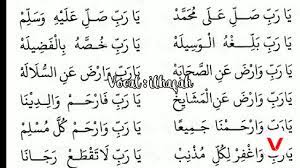 يَا رَبِّ صَلِّ عَلَى مُحَمَّدْ يَا رَبِّ صَلِّ عَلَيْهِ وَسَلِّمْ
يَا رَبِّ بَلِّغْهُ الْوَسِيلَهْ يَا رَبِّ خُصَّهُ بِالْفَضِيلَهْ
Vocal : Ilhajah
يَا رَبِّ وَارْضَ عَنِ الصَّحَابَهْ يَا رَبِّ وَارْضَ عَنِ السُّلَالَهْ
يَا رَبِّ وَارْضَ عَنِ الْمَشَايِخْ يَا رَبِّ فَارْحَمْ وَالِدِينَا
يَا رَبِّ وَارْحَمْنَا جَمِيعًا يَا رَبِّ وَارْحَمْ كُلَّ مُسْلِمْ
يَا رَبِّ وَاغْفِرْ لِكُلِّ مُذْنِبْ يَا رَبِّ لَا تَقْطَعْ رَجَانَا